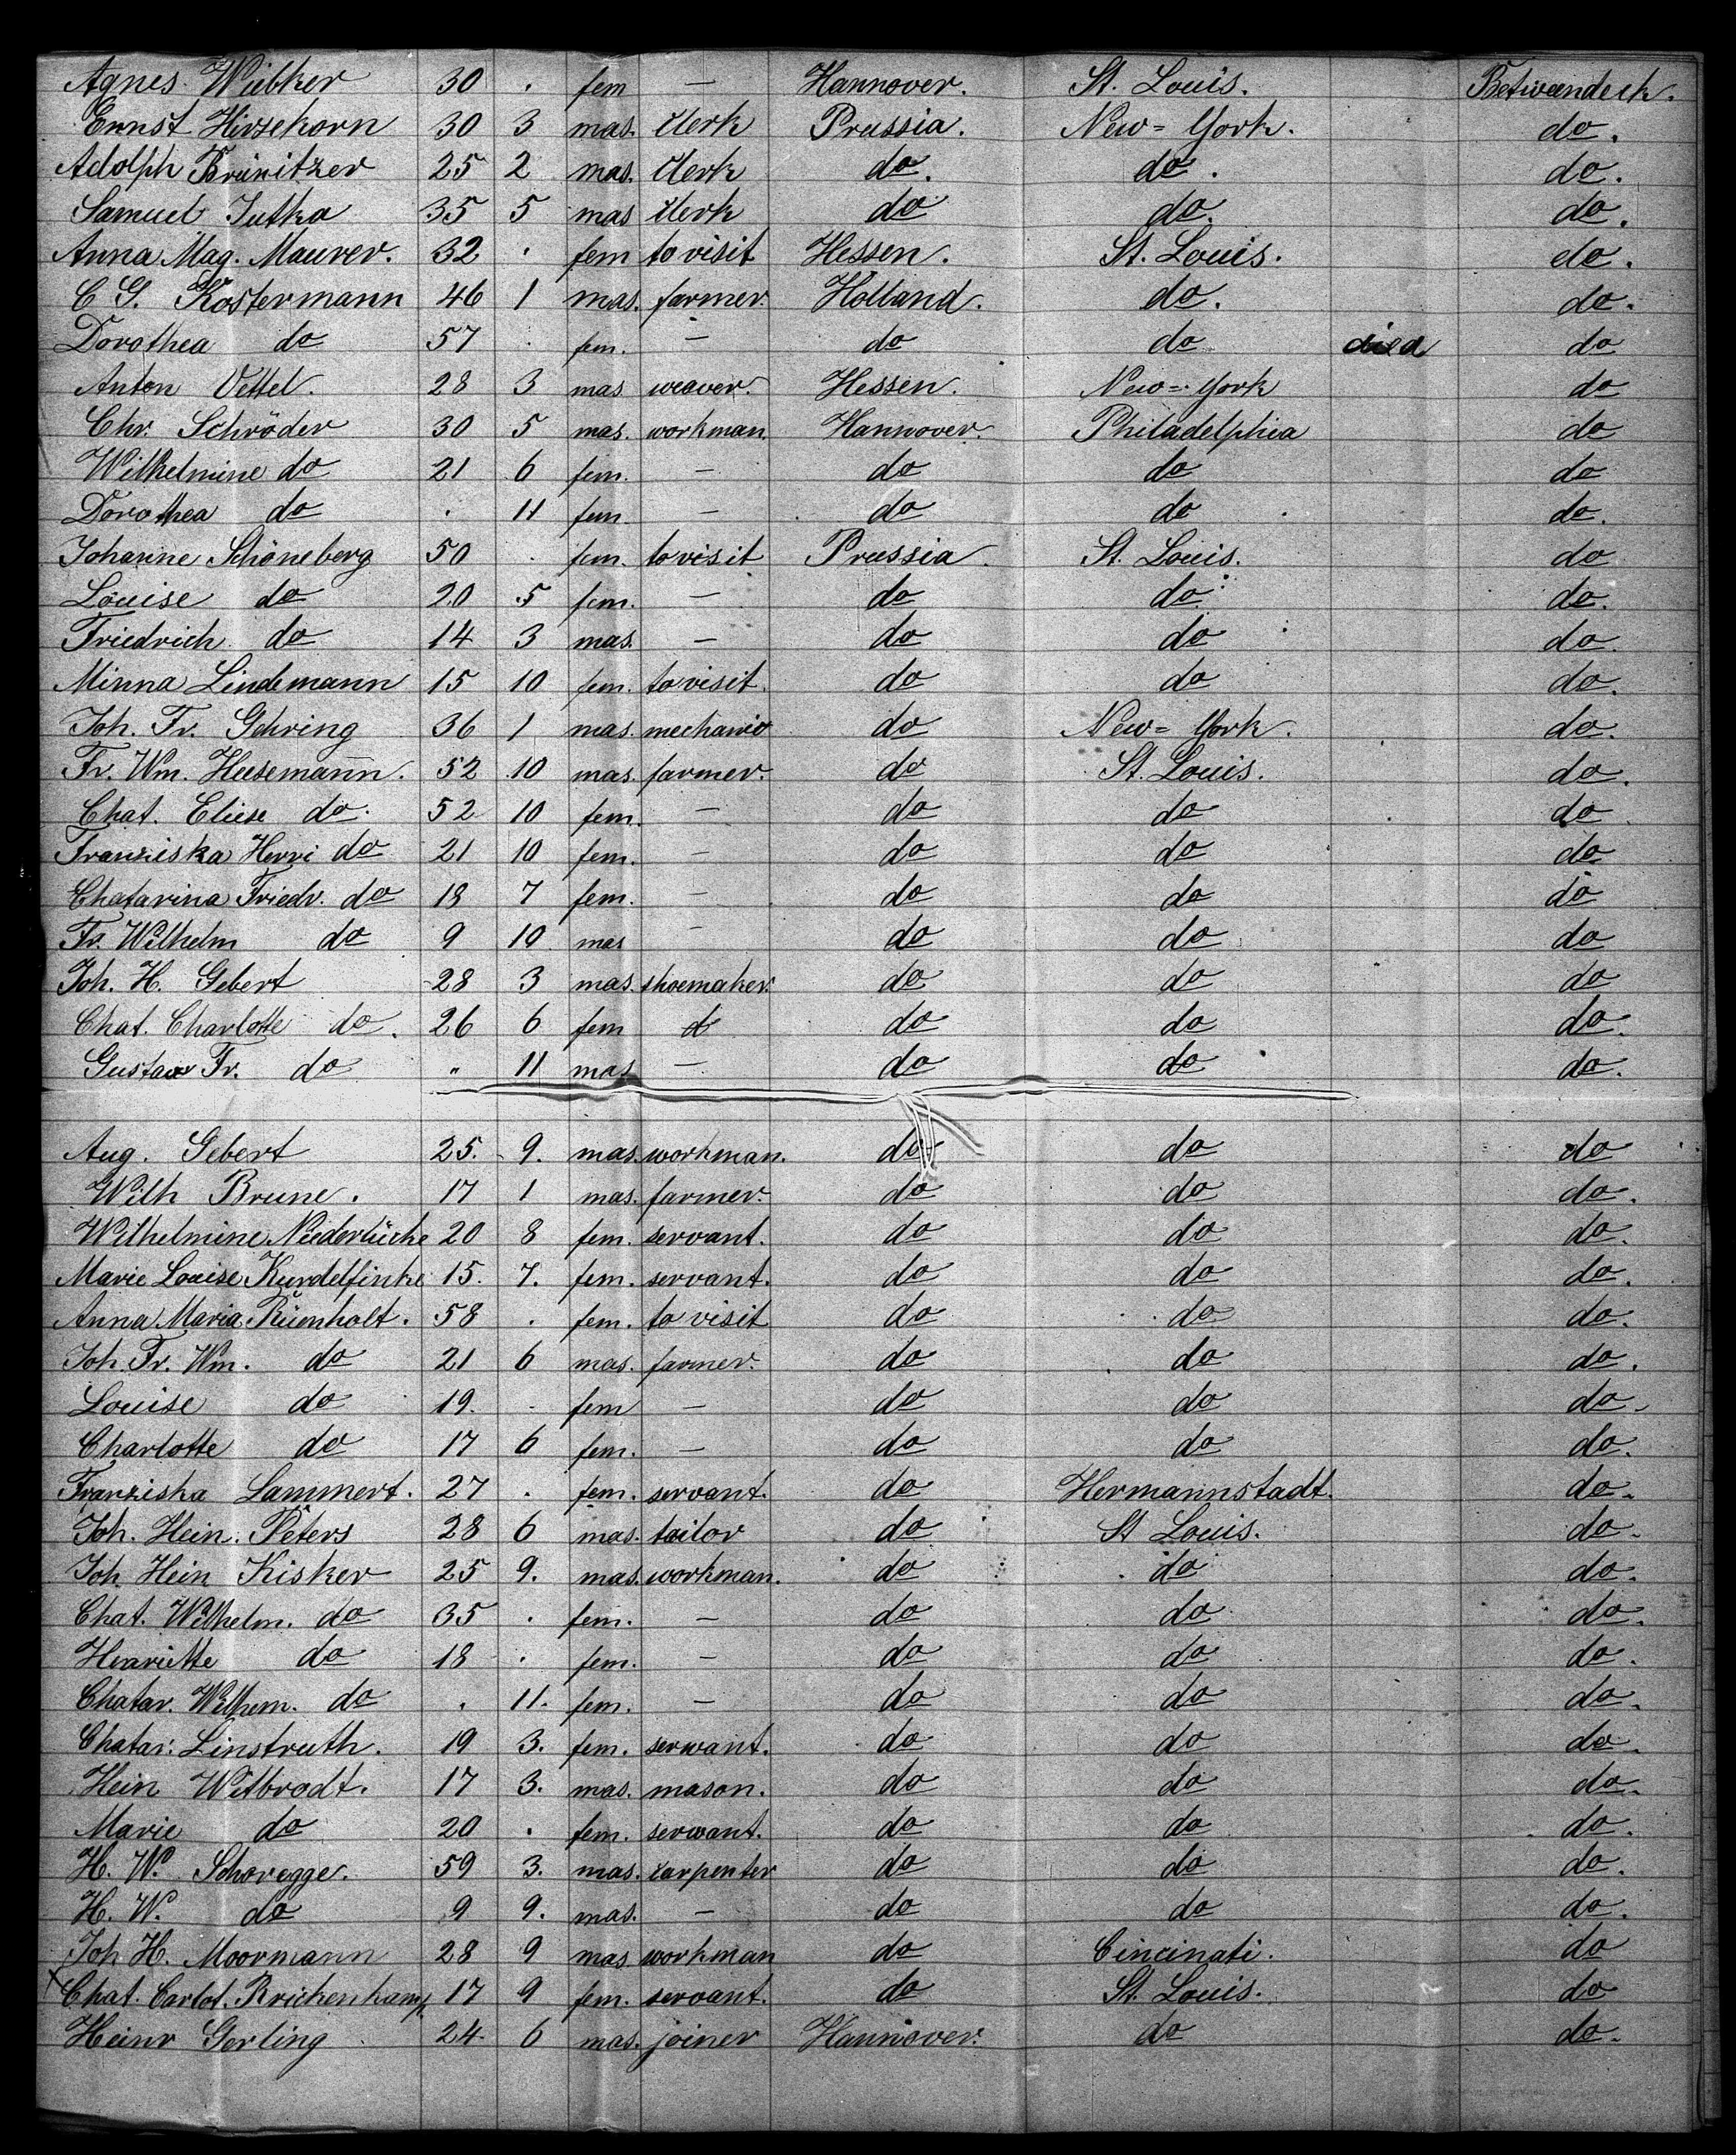 Agnes Wiebker 30 . fem — Hannover. St. Louis. Betweendeck.
Ernst Hirsekorn 30 3 mas. Clerk Prussia. New=York. do.
Adolph Brünitzer 25 2 mas. Clerk do. do. do.
Samuel Jutka 35 5 mas Clerk do do. do.
Anna Mag. Maurer. 32 . fem to visit Hessen. St. Louis. do.
C G. Kostermann 46 1 mas. farmer. Holland. do. do.
Dorothea do 57 . fem. — do do died do
Anton Vettel. 28 3 mas. weaver. Hessen. New=York do
Chr. Schröder 30 5 mas. workman. Hannover. Philadelphia do
Wilhelmine do 21 6 fem. — do do do
Dorothea do . 11 fem. — do do do.
Johanne Schöneberg 50 . fem. to visit Prussia. St. Louis. do
Louise do 20 5 fem. — do do do.
Friedrich do 14 3 mas. — do do do.
Minna Lindemann 15 10 fem. to visit. do do do.
Joh. Fr. Gehring 36 1 mas. mechanic do New=York. do.
Fr. Wm. Heesemann. 52 10 mas. farmer. do St. Louis. do.
Chat. Eliese do. 52 10 fem. — do do do.
Franziska Henri do 21 10 fem. — do do do
Chatarina Friedr. do 18 7 fem. — do do do
Fr. Wilhelm do 9 10 mas — do do do
Joh. H. Gebert 28 3 mas. shoemaker. do do do
Chat. Charlotte do. 26 6 fem d do do do.
Gustav Fr. do " 11 mas — do do do.
Aug. Gebert 25. 9. mas. workman. do do do
Wilh Brune. 17 1 mas. farmer. do do do.
Wilhelmine Niederlücke 20 8 fem. servant. do do do.
Marie Louise Kundelfinke 15. 7. fem. servant. do do do.
Anna Maria Rümholt. 58 . fem. to visit do do do.
Joh. Fr. Wm. do 21 6 mas. farmer. do do do.
Louise do 19. . fem — do do do.
Charlotte do 17 6 fem. — do do do.
Franziska Lammert. 27 . fem. servant. do Hermannstadt. do.
Joh. Hein. Peters 28 6 mas. tailor do St Louis. do.
Joh. Hein Kisker 25 9. mas. workman. do do do.
Chat. Wilhelm. do 35 . fem. — do do do.
Henriette do 18 . fem. — do do do.
Chatar. Wilhem. do . 11. fem. — do do do.
Chatar: Linstruth. 19 3. fem. servant. do do do.
Hein Witbrodt. 17 3. mas. mason. do do do.
Marie do 20 . fem. servant. do do do.
H. W. Schoregge. 59 3. mas. carpenter do do do.
H. W. do 9 9. mas. — do do do.
Joh H. Moormann 28 9 mas workman do Cincinati. do
x Chat. Carlot. Brickenkamp 17 9 fem. servant. do St. Louis. do
Heinr Gerling 24 6 mas. joiner Hannover. do do.